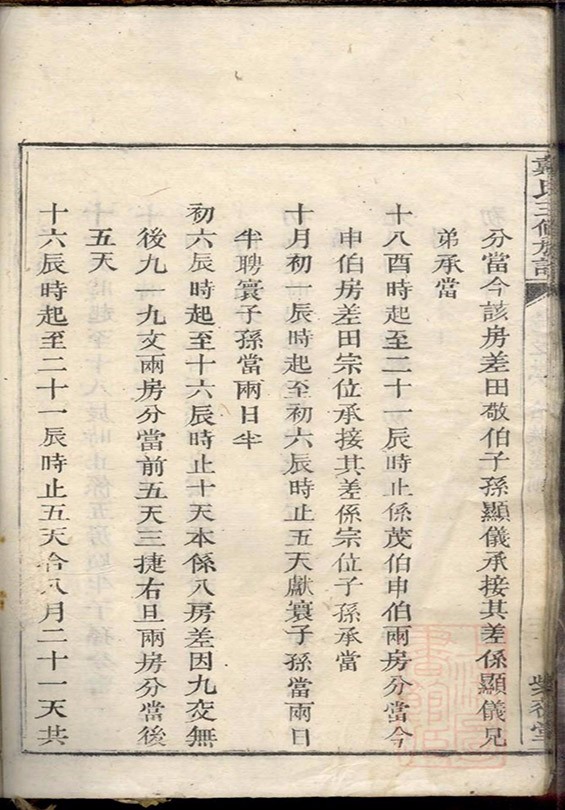 氏三修族譜
分當今該房差田敬伯子孫顯儀承接其差係顯儀兄
弟承當
十八酉時起至二十一辰時止係茂伯申伯兩房分當今
申伯房差田宗位承接其差係宗位子孫承當
十月初一辰時起至初六辰時止五天獻寰子孫當兩日
半聘寰子孫當兩日半
初六辰時起至十六辰時止十天本係八房差因九交無
後九一九文兩房分當前五天三捷右旦兩房分當後
五天
十六辰時起至二十一辰時止五天合八月二十一天共